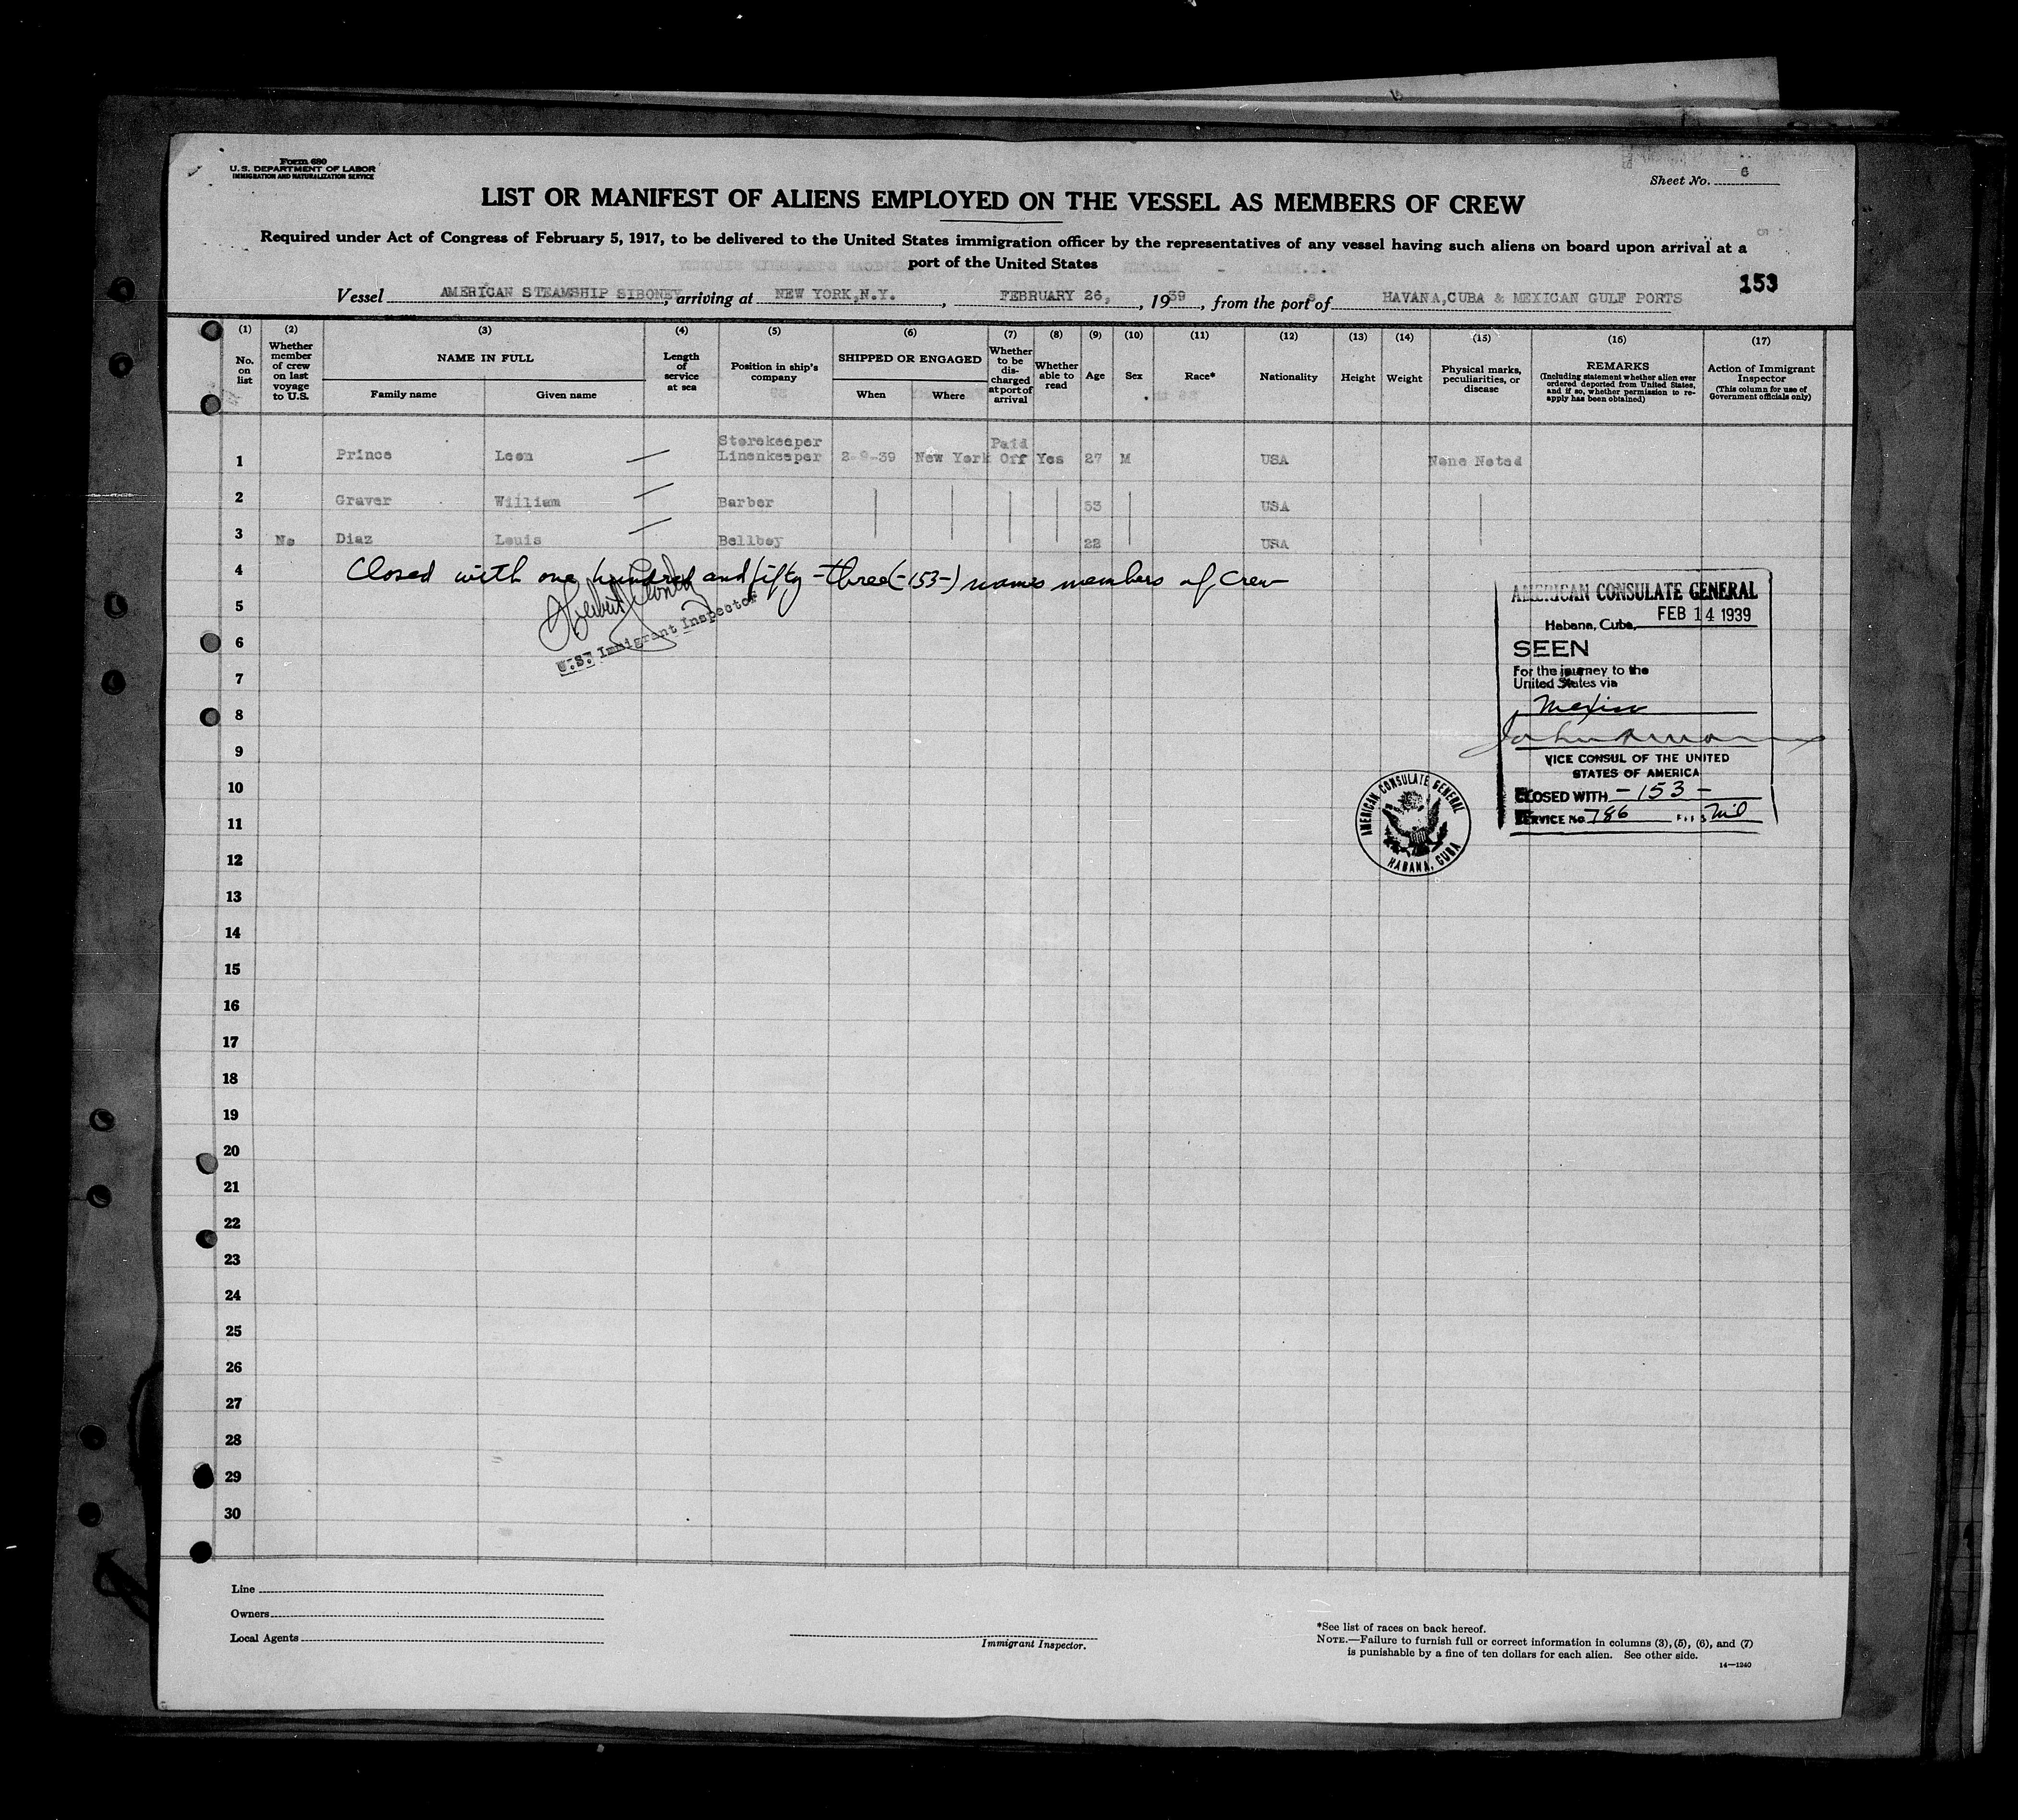 Form 680
U.S. DEPARTMENT OF LABOR
IMMIGRATION AND NATURALIZATION SERVICE
Sheet No. 6
LIST OR MANIFEST OF ALIENS EMPLOYED ON THE VESSEL AS MEMBERS OF CREW
Required under Act of Congress of February 5, 1917, to be delivered to the United States immigration officer by the representatives of any vessel having such aliens on board upon arrival at a
port of the United States
153
Vessel AMERICAN STEAMSHIP SIBONEY, arriving at NEW YORK,N.Y., FEBRUARY 26, 1939, from the ports of HAVANA,CUBA & MEXICAN GULF PORTS
(1) (2) (3) (4) (5) (6) (7) (8) (9) (10) (11) (12) (13) (14) (15) (16) (17)
No. on list
Whether member of crew on last voyage to U.S.
NAME IN FULL
Family name
Given name
Length of service at sea
Position in ship's company
SHIPPED OR ENGAGED
When
Where
Whether to be discharged at port of arrival
Whether able to read
Age
Sex
Race*
Nationality
Height
Weight
Physical marks, peculiarities, or disease
REMARKS
(Including statement whether alien ever ordered deported from United States, and if so, whether permission to reapply has been obtained)
Action of Immigrant Inspector
(This column for use of Government officials only)
1 Prince Leon — Storekeeper Linenkeeper 2-9-39 New York Paid Off Yes 27 M USA None Noted
2 Graver William — Barber 53 USA
3 No Diaz Louis — Bellboy 22 USA
4 Closed with one hundred and fifty-three (-153-) names members of crew
5
U.S. Immigrant Inspector
6
7
8
9
10
11
12
13
14
15
16
17
18
19
20
21
22
23
24
25
26
27
28
29
30
AMERICAN CONSULATE GENERAL
Habana, Cuba, FEB 14 1939
SEEN
For the journey to the
United States via
Mexico
VICE CONSUL OF THE UNITED
STATES OF AMERICA
CLOSED WITH -153-
SERVICE No. 786
AMERICAN CONSULATE GENERAL
HABANA, CUBA
Line
Owners
Local Agents
Immigrant Inspector.
*See list of races on back hereof.
NOTE.—Failure to furnish full or correct information in columns (3), (5), (6), and (7)
is punishable by a fine of ten dollars for each alien. See other side.
14—1240